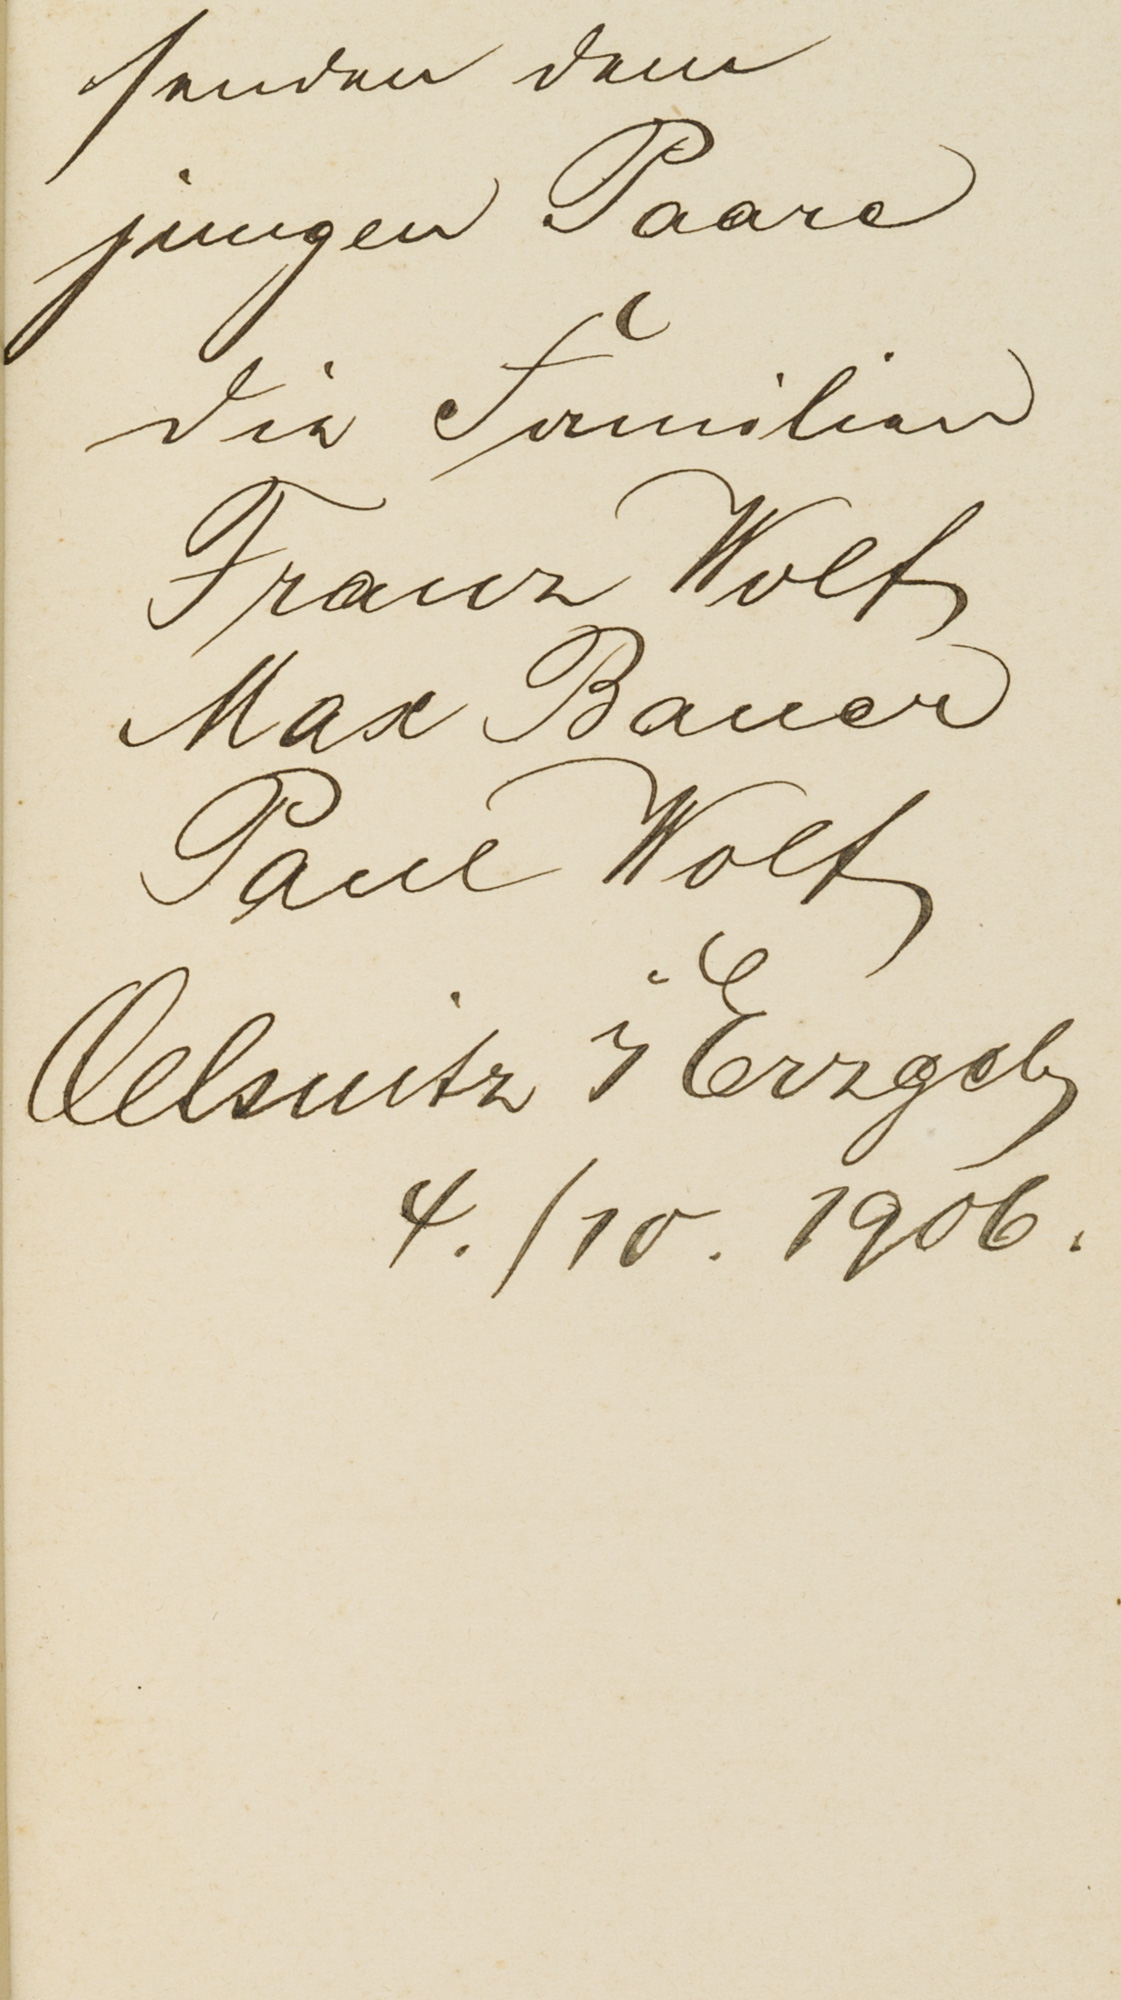 senden dem
jungen Paare
die Familien
Franz Wolf
Max Bauer
Paul Wolf
Oelsnitz i Erzgeb
4./10. 1906.